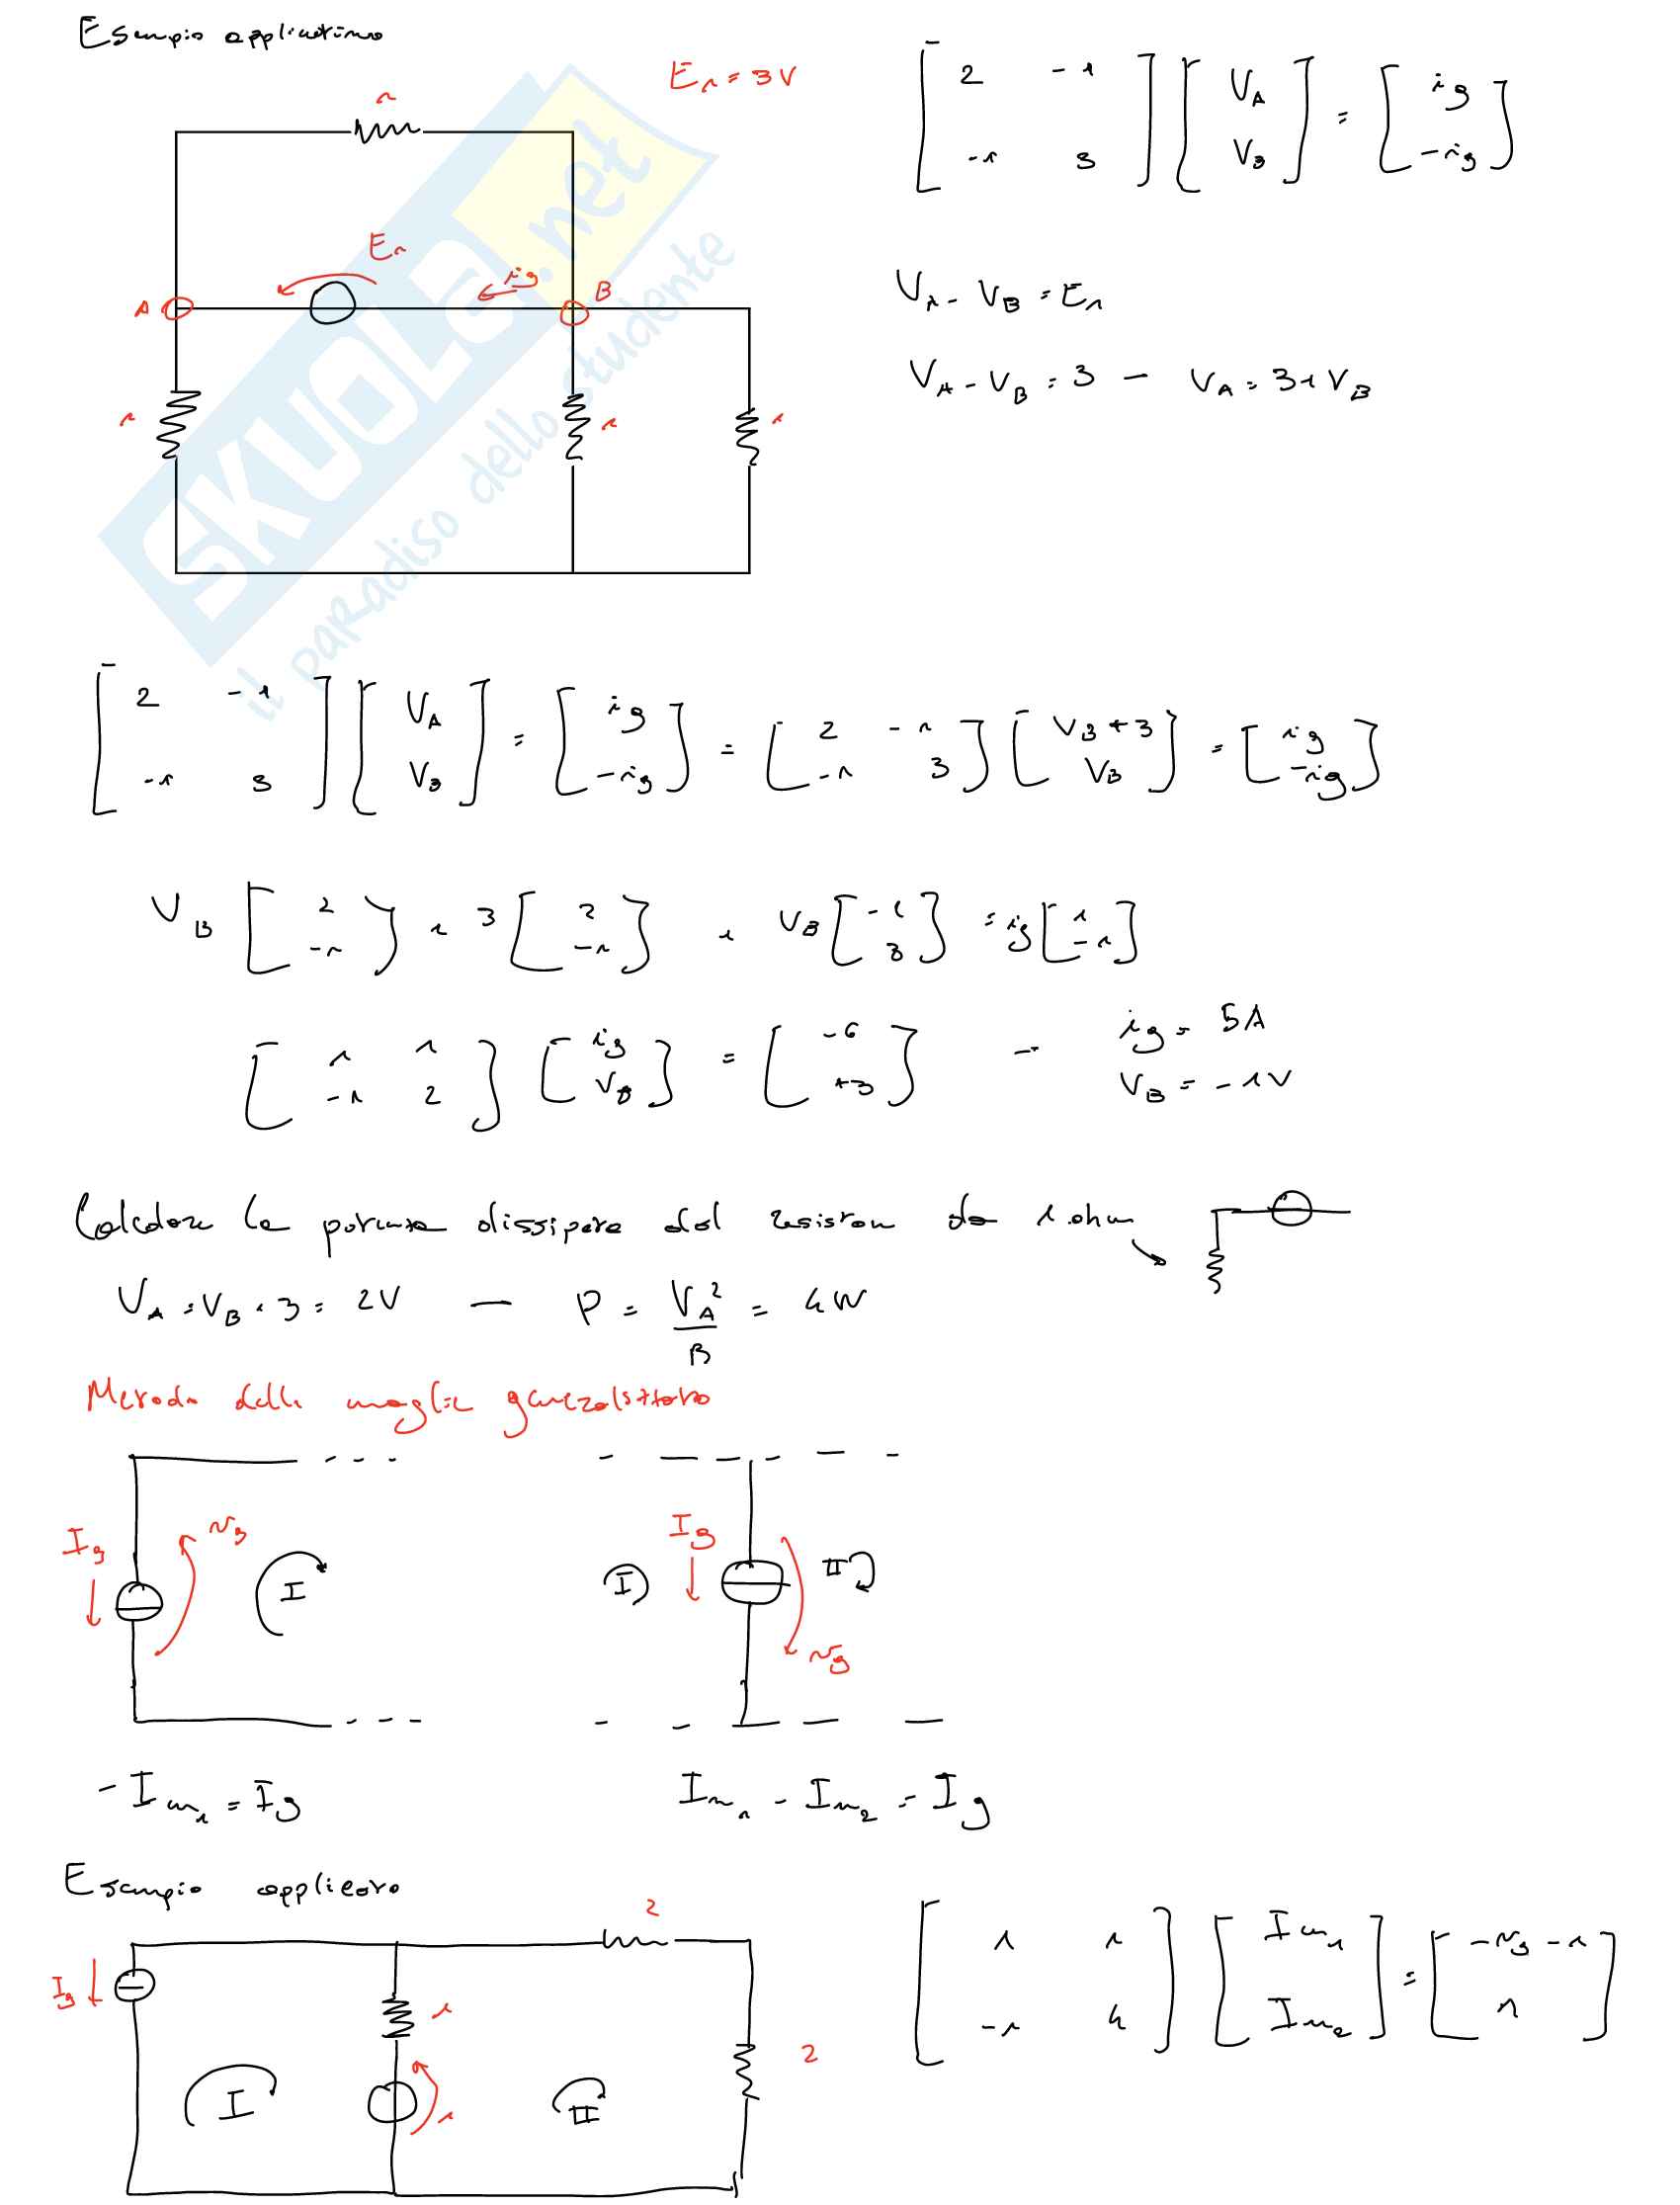 Esempio applicativo
E₁ = 3V
[2 -1; -1 3] [V_A; V_B] = [ig; -ig]
1
E₁
ig
A
B
V_A - V_B = E₁
V_A - V_B = 3 — V_A = 3 + V_B
1
1
1
SKUOLA.net
il paradiso dello studente
[2 -1; -1 3] [V_A; V_B] = [ig; -ig] = [2 -1; -1 3] [V_B + 3; V_B] = [ig; -ig]
V_B [2; -1] + 3 [2; -1] + V_B [-1; 3] = ig [1; -1]
[1 1; -1 2] [ig; V_B] = [-6; +3] — ig = 5A
V_B = -1V
Calcolare la potenza dissipata dal resistore da 1 ohm
V_A = V_B + 3 = 2V — P = V_A² / R = 4W
Metodo delle maglie generalizzato
Ig
vg
I
I
Ig
II
vg
-Im₁ = Ig
Im₁ - Im₂ = Ig
Esempio applicato
2
Ig
1
I
1
II
2
[1 1; -1 4] [Im₁; Im₂] = [-vg - 1; 1]